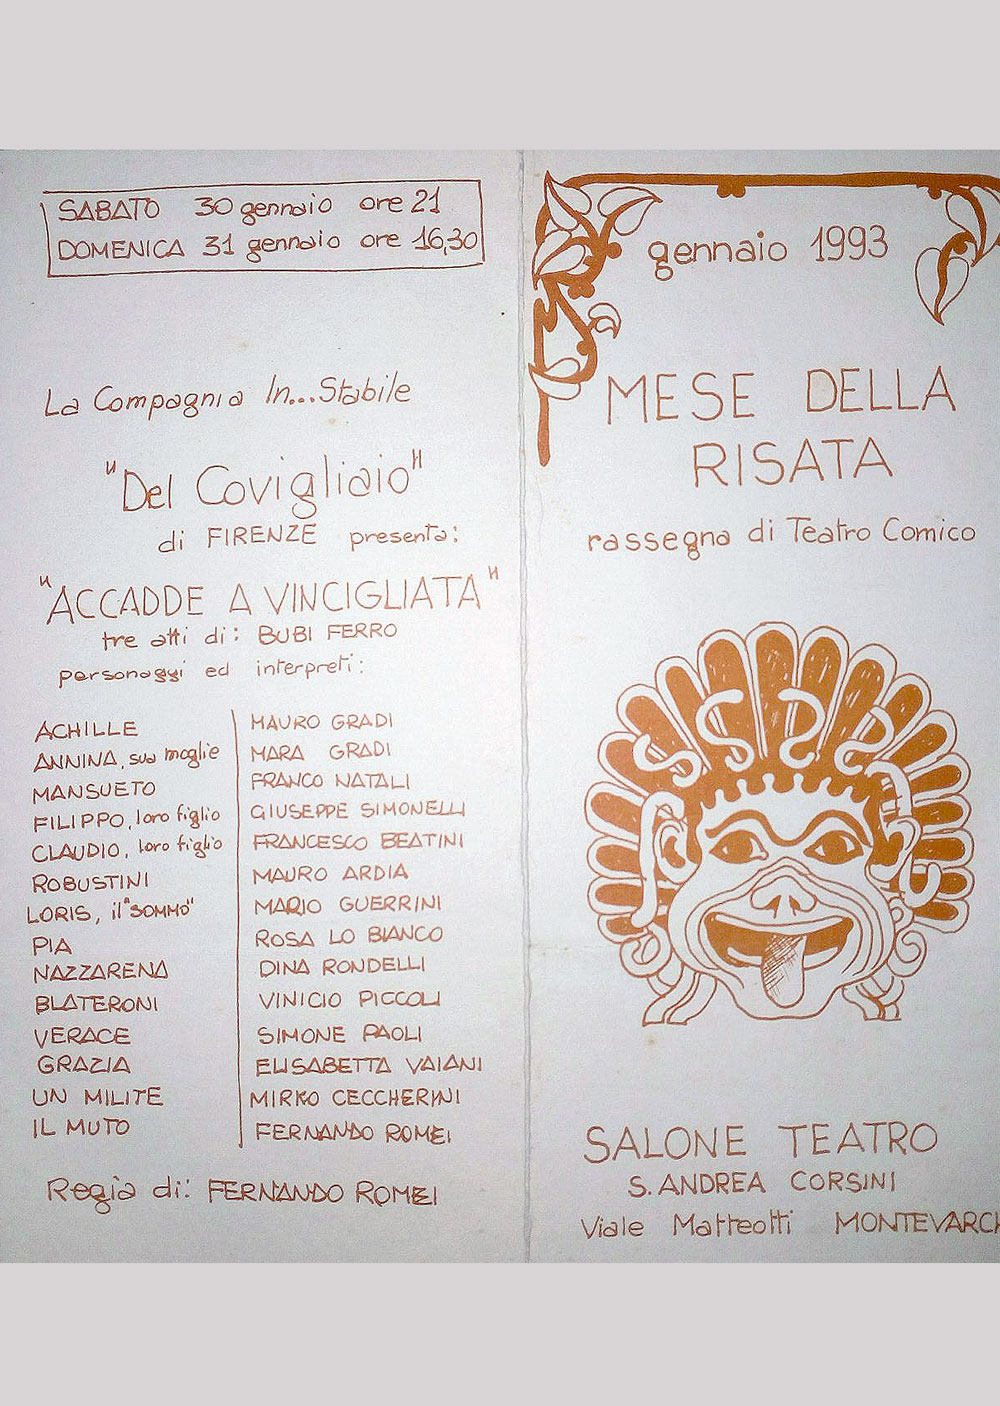 SABATO 30 gennaio ore 21
DOMENICA 31 gennaio ore 16,30
La Compagnia In...Stabile
"Del Covigliaio"
di FIRENZE presenta:
"ACCADDE A VINCIGLIATA"
tre atti di: BUBI FERRO
personaggi ed interpreti:
ACHILLE MAURO GRADI
ANNINA, sua moglie MARA GRADI
MANSUETO FRANCO NATALI
FILIPPO, loro figlio GIUSEPPE SIMONELLI
CLAUDIO, loro figlio FRANCESCO BEATINI
ROBUSTINI MAURO ARDIA
LORIS, il "SOMMO" MARIO GUERRINI
PIA ROSA LO BIANCO
NAZZARENA DINA RONDELLI
BLATERONI VINICIO PICCOLI
VERACE SIMONE PAOLI
GRAZIA ELISABETTA VAIANI
UN MILITE MIRKO CECCHERINI
IL MUTO FERNANDO ROMEI
Regia di: FERNANDO ROMEI
gennaio 1993
MESE DELLA
RISATA
rassegna di Teatro Comico
SALONE TEATRO
S. ANDREA CORSINI
Viale Matteotti MONTEVARCH